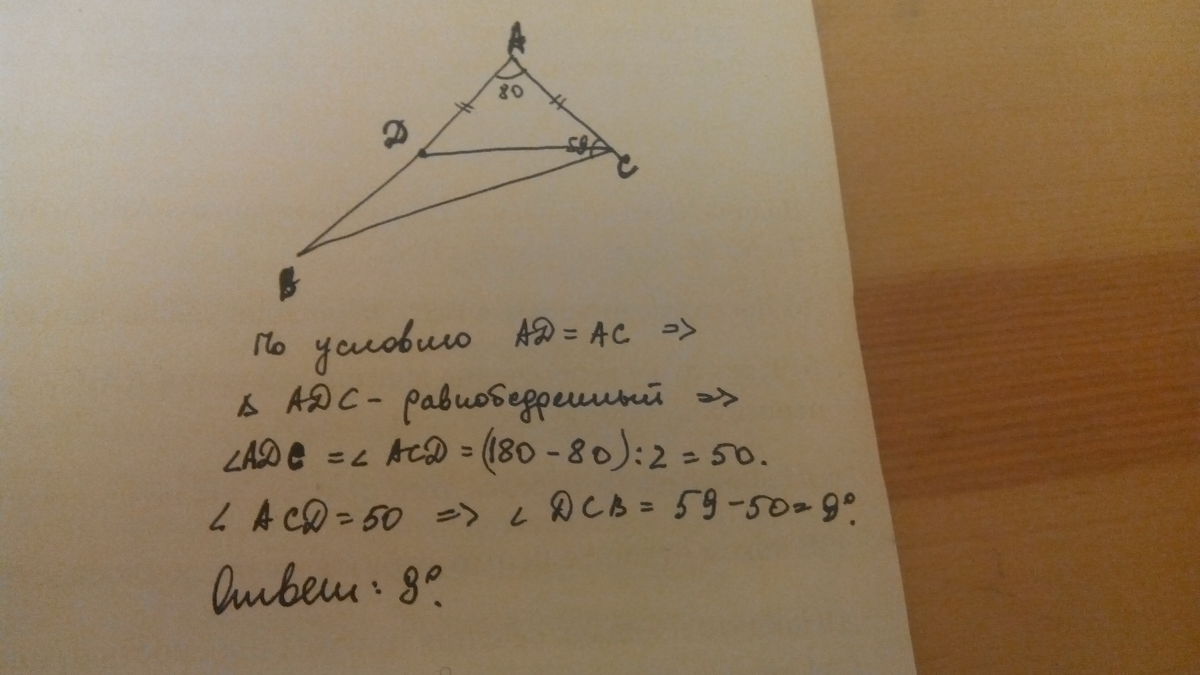 A
80
D
59
C
B
По условию AD = AC =>
Δ ADC - равнобедренный =>
∠ADC = ∠ ACD = (180 - 80) : 2 = 50.
∠ ACD = 50 => ∠ DCB = 59 - 50 = 9°.
Ответ: 9°.